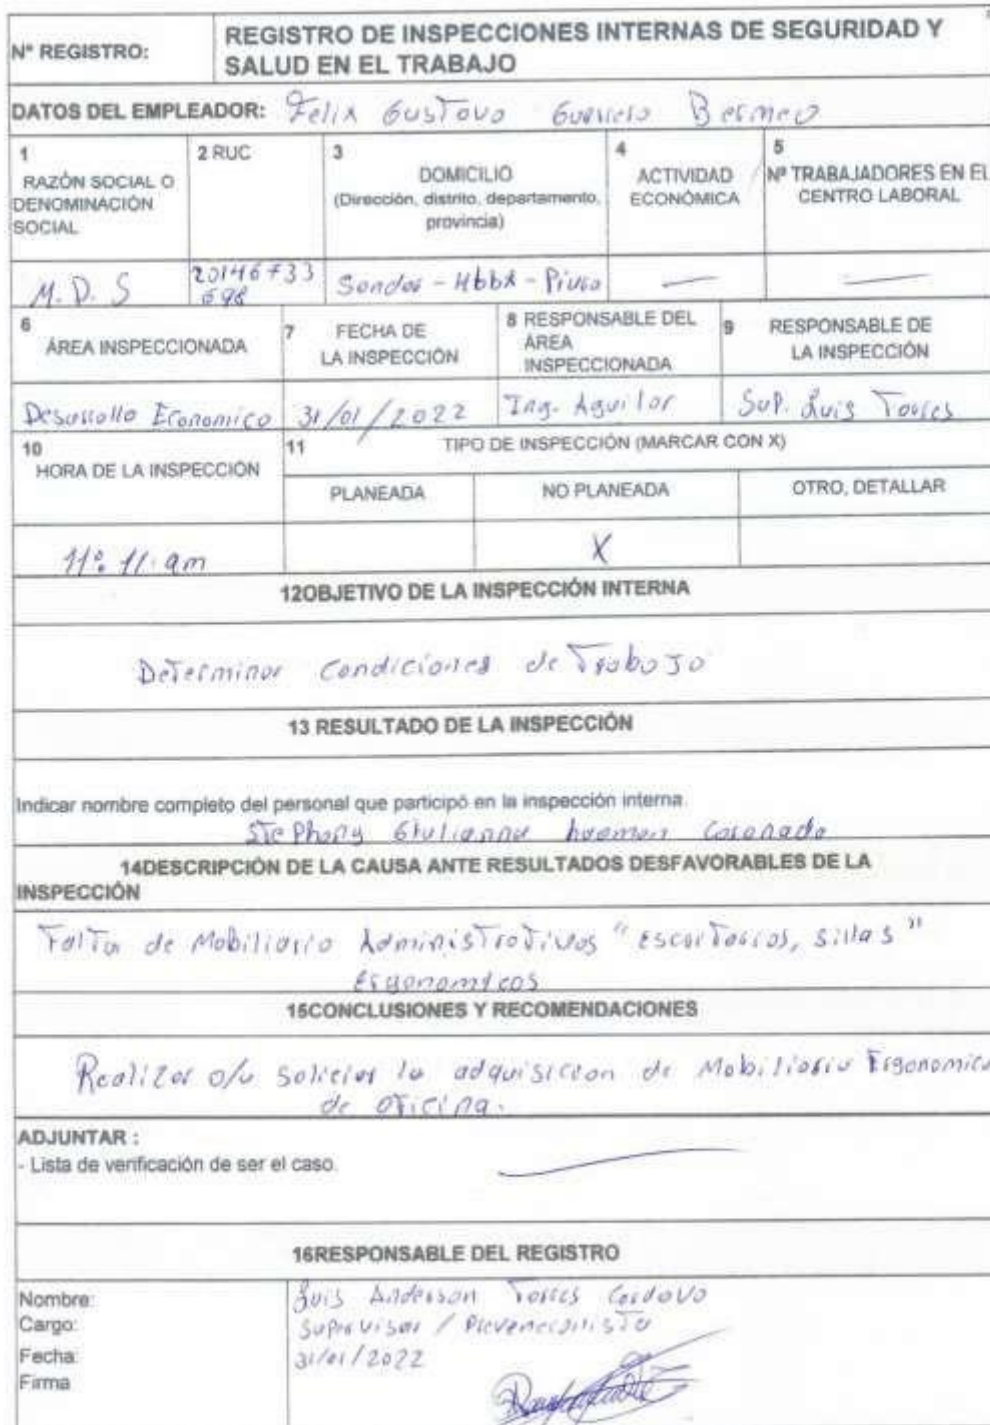 N° REGISTRO:
REGISTRO DE INSPECCIONES INTERNAS DE SEGURIDAD Y
SALUD EN EL TRABAJO
DATOS DEL EMPLEADOR: Felix Gustavo Guerrero Bermeo
1
RAZÓN SOCIAL O
DENOMINACIÓN
SOCIAL
2 RUC
3
DOMICILIO
(Dirección, distrito, departamento,
provincia)
4
ACTIVIDAD
ECONÓMICA
5
Nº TRABAJADORES EN EL
CENTRO LABORAL
M. D. S
20146733
698
Sondor - Hbba - Piura
6
ÁREA INSPECCIONADA
7
FECHA DE
LA INSPECCIÓN
8 RESPONSABLE DEL
ÁREA
INSPECCIONADA
9
RESPONSABLE DE
LA INSPECCIÓN
Desarrollo Economico
31/01/2022
Ing. Aguilar
Sup. Luis Torres
10
HORA DE LA INSPECCIÓN
11
TIPO DE INSPECCIÓN (MARCAR CON X)
PLANEADA
NO PLANEADA
OTRO, DETALLAR
11: 11. am
X
12OBJETIVO DE LA INSPECCIÓN INTERNA
Determinar Condiciones de Trabajo
13 RESULTADO DE LA INSPECCIÓN
Indicar nombre completo del personal que participó en la inspección interna.
Stephany Giulianna huaman Coronado
14DESCRIPCIÓN DE LA CAUSA ANTE RESULTADOS DESFAVORABLES DE LA
INSPECCIÓN
Falta de Mobiliario Administrativos "Escritorios, Sillas"
Ergonomicos
15CONCLUSIONES Y RECOMENDACIONES
Realizar o/u Solicitar la adquisicion de Mobiliario Ergonomico
de oficina.
ADJUNTAR :
- Lista de verificación de ser el caso.
16RESPONSABLE DEL REGISTRO
Nombre: Luis Anderson Torres Cordova
Cargo: Supervisor / Prevencionista
Fecha: 31/01/2022
Firma